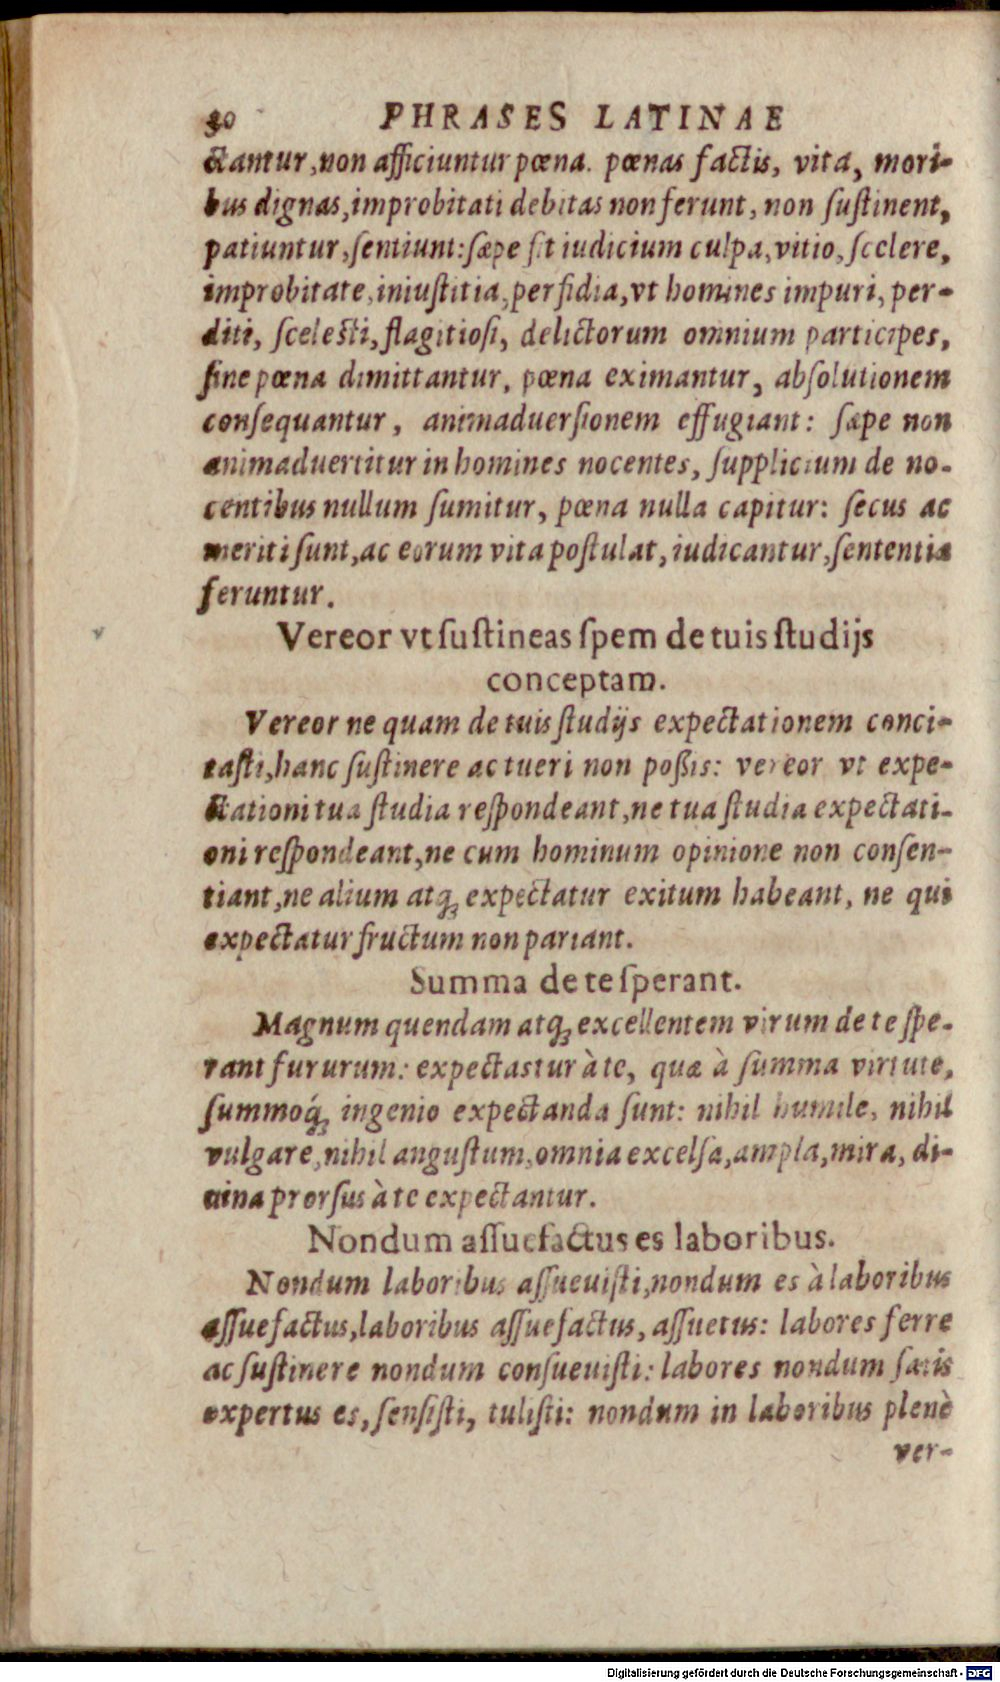 30 PHRASES LATINAE
ctantur, non afficiuntur pœna. pœnas factis, vita, mori-
bus dignas, improbitati debitas non ferunt, non ſuſtinent,
patiuntur, ſentiunt: ſæpe fit iudicium culpa, vitio, ſcelere,
improbitate, iniuſtitia, perfidia, vt homines impuri, per-
diti, ſceleſti, flagitioſi, delictorum omnium participes,
ſine pœna dimittantur, pœna eximantur, abſolutionem
conſequantur, animaduerſionem effugiant: ſæpe non
animaduertitur in homines nocentes, ſupplicium de no-
centibus nullum ſumitur, pœna nulla capitur: ſecus ac
meriti ſunt, ac eorum vita poſtulat, iudicantur, ſententiæ
feruntur.
Vereor vt ſuſtineas ſpem de tuis ſtudijs
conceptam.
Vereor ne quam de tuis ſtudijs expectationem conci-
taſti, hanc ſuſtinere ac tueri non poßis: vereor vt expe-
ctationi tua ſtudia reſpondeant, ne tua ſtudia expectati-
oni reſpondeant, ne cum hominum opinione non conſen-
tiant, ne alium atq; expectatur exitum habeant, ne qui
expectatur fructum non pariant.
Summa de te ſperant.
Magnum quendam atq; excellentem virum de te ſpe-
rant fururum: expectastur à te, quæ à ſumma virtute,
ſummoq́; ingenio expectanda ſunt: nihil humile, nihil
vulgare, nihil anguſtum, omnia excelſa, ampla, mira, di-
uina prorſus à te expectantur.
Nondum aſſuefactus es laboribus.
Nondum laboribus aſſueuiſti, nondum es à laboribus
aſſuefactus, laboribus aſſuefactus, aſſuetus: labores ferre
ac ſuſtinere nondum conſueuiſti: labores nondum ſatis
expertus es, ſenſiſti, tuliſti: nondum in laboribus plenè
ver-
Digitalisierung gefördert durch die Deutsche Forschungsgemeinschaft - DFG